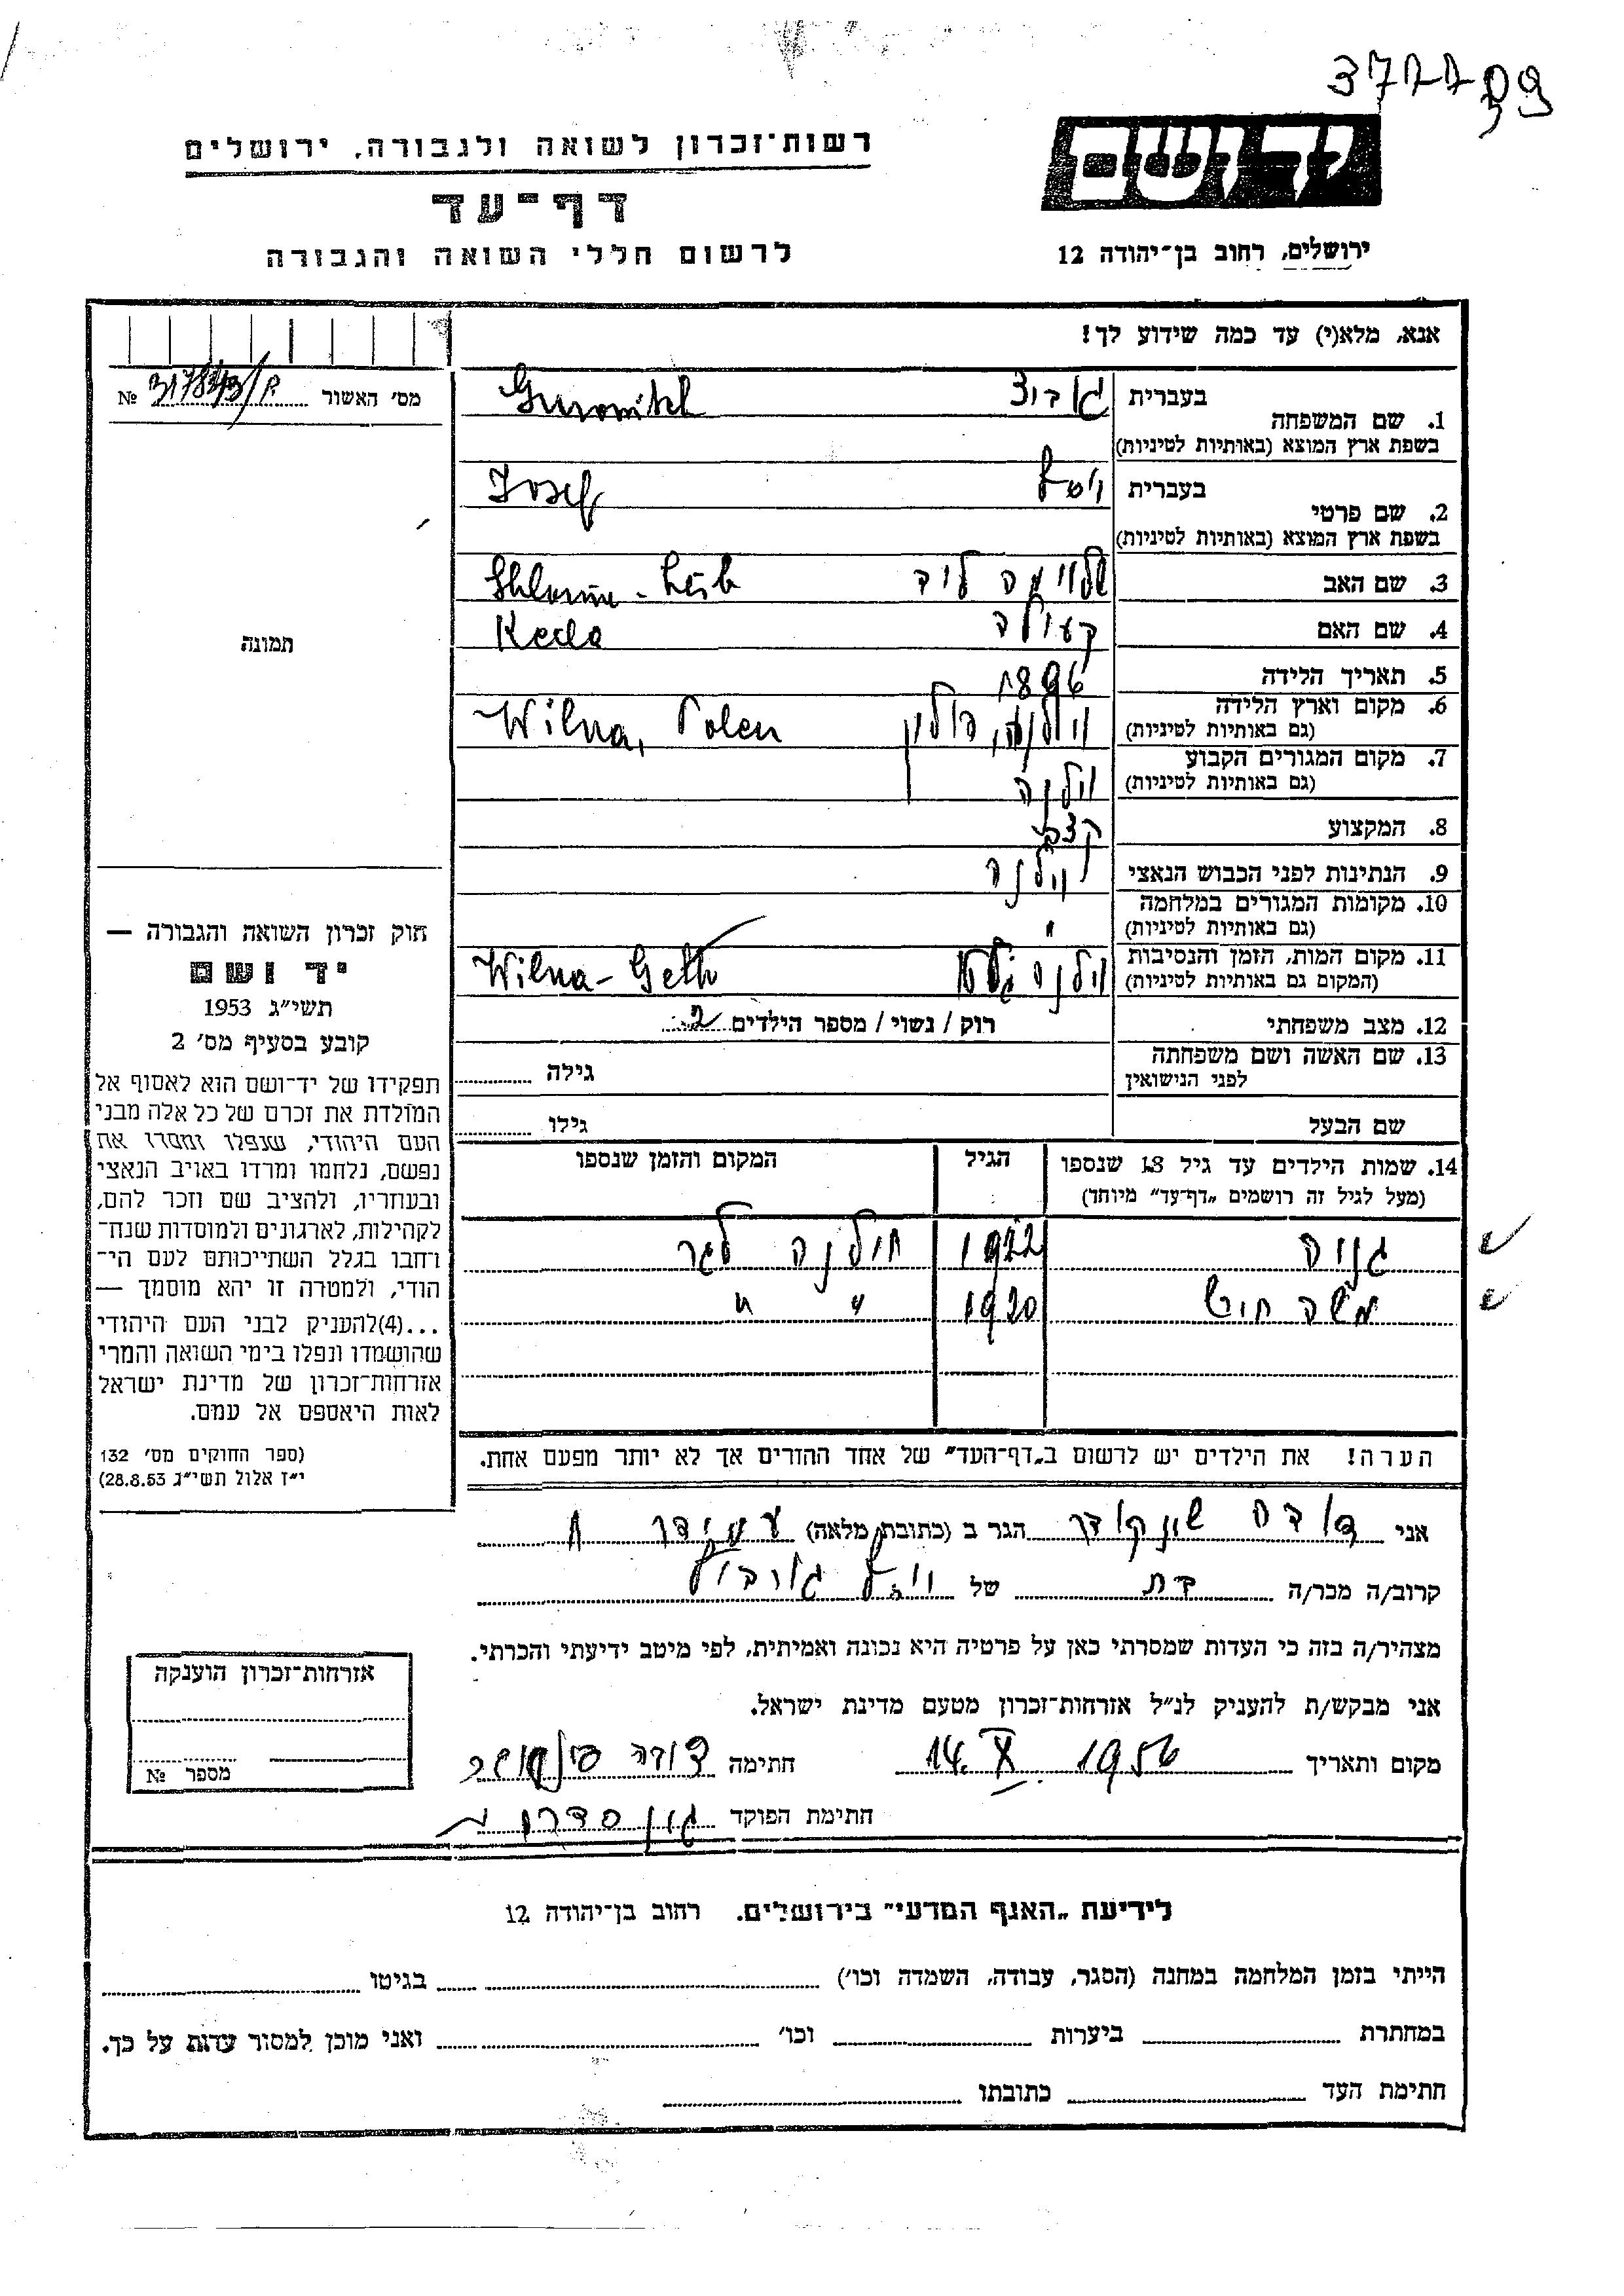 רשות־זכרון לשואה ולגבורה, ירושלים
דף־עד
לרשום חללי השואה והגבורה
יד ושם
ירושלים, רחוב בן־יהודה 12
אנא, מלא(י) עד כמה שידוע לך!
מס׳ האשור №
תמונה
1. שם המשפחה
בעברית
בשפת ארץ המוצא (באותיות לטיניות)
2. שם פרטי
בעברית
בשפת ארץ המוצא (באותיות לטיניות)
Josef
3. שם האב
4. שם האם
5. תאריך הלידה 1896
6. מקום וארץ הלידה
(גם באותיות לטיניות)
Wilna, Polen
7. מקום המגורים הקבוע
(גם באותיות לטיניות)
וילנה
8. המקצוע קצב
9. הנתינות לפני הכבוש הנאצי
וילנה
10. מקומות המגורים במלחמה
(גם באותיות לטיניות) "
11. מקום המות, הזמן והנסיבות
(המקום גם באותיות לטיניות)
וילנה גטו Wilna - Getto
12. מצב משפחתי רוק / נשוי / מספר הילדים 2
13. שם האשה ושם משפחתה
לפני הנישואין
גילה
שם הבעל גילו
14. שמות הילדים עד גיל 18 שנספו הגיל המקום והזמן שנספו
(מעל לגיל זה רושמים „דף־עד" מיוחד)
1922
1920 " "
הערה! את הילדים יש לרשום ב„דף־העד" של אחד ההורים אך לא יותר מפעם אחת.
חוק זכרון השואה והגבורה —
יד ושם
תשי״ג 1953
קובע בסעיף מס׳ 2
תפקידו של יד־ושם הוא לאסוף אל
המולדת את זכרם של כל אלה מבני
העם היהודי, שנפלו ומסרו את
נפשם, נלחמו ומרדו באויב הנאצי
ובעוזריו, ולהציב שם וזכר להם,
לקהילות, לארגונים ולמוסדות שנח־
רחבו בגלל השתייכותם לעם הי־
הודי, ולמטרה זו יהא מוסמך —
...(4)להעניק לבני העם היהודי
שהושמדו ונפלו בימי השואה והמרי
אזרחות־זכרון של מדינת ישראל
לאות היאספם אל עמם.
(ספר החוקים מס׳ 132
י״ז אלול תשי״ג 28.8.53)
אני הגר ב (כתובת מלאה)
קרוב/ה מכר/ה בת של
מצהיר/ה בזה כי העדות שמסרתי כאן על פרטיה היא נכונה ואמיתית, לפי מיטב ידיעתי והכרתי.
אני מבקש/ת להעניק לנ״ל אזרחות־זכרון מטעם מדינת ישראל.
מקום ותאריך 14. X. 1956 חתימה
חתימת הפוקד
אזרחות־זכרון הוענקה
מספר №
לידיעת „האגף המדעי" בירושלים. רחוב בן־יהודה 12
הייתי בזמן המלחמה במחנה (הסגר, עבודה, השמדה וכו׳) בגיטו
במחתרת ביערות וכו׳ ואני מוכן למסור עדות על כך.
חתימת העד כתובתו